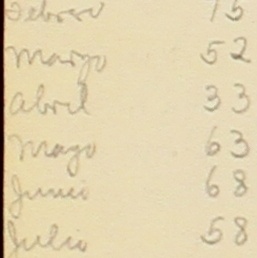 Febrero 75
Marzo 52
Abril 33
Mayo 63
Junio 68
Julio 58